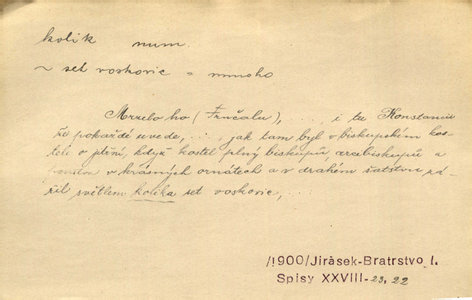 kolik num.
~ set voskovic = mnoho
Mrzelo ho (Trnčalu), ..., i tu Konstanci
že pokaždé uvede, ..., jak tam byl v biskupském kos-
tele o jitřní, když kostel plný biskupův arcibiskupův a
panstva v krásných ornátech a v drahém šatstvu zá-
řil světlem kolika set voskovic, ...
/1900/Jirásek-Bratrstvo I.
Spisy XXVIII-23, 22